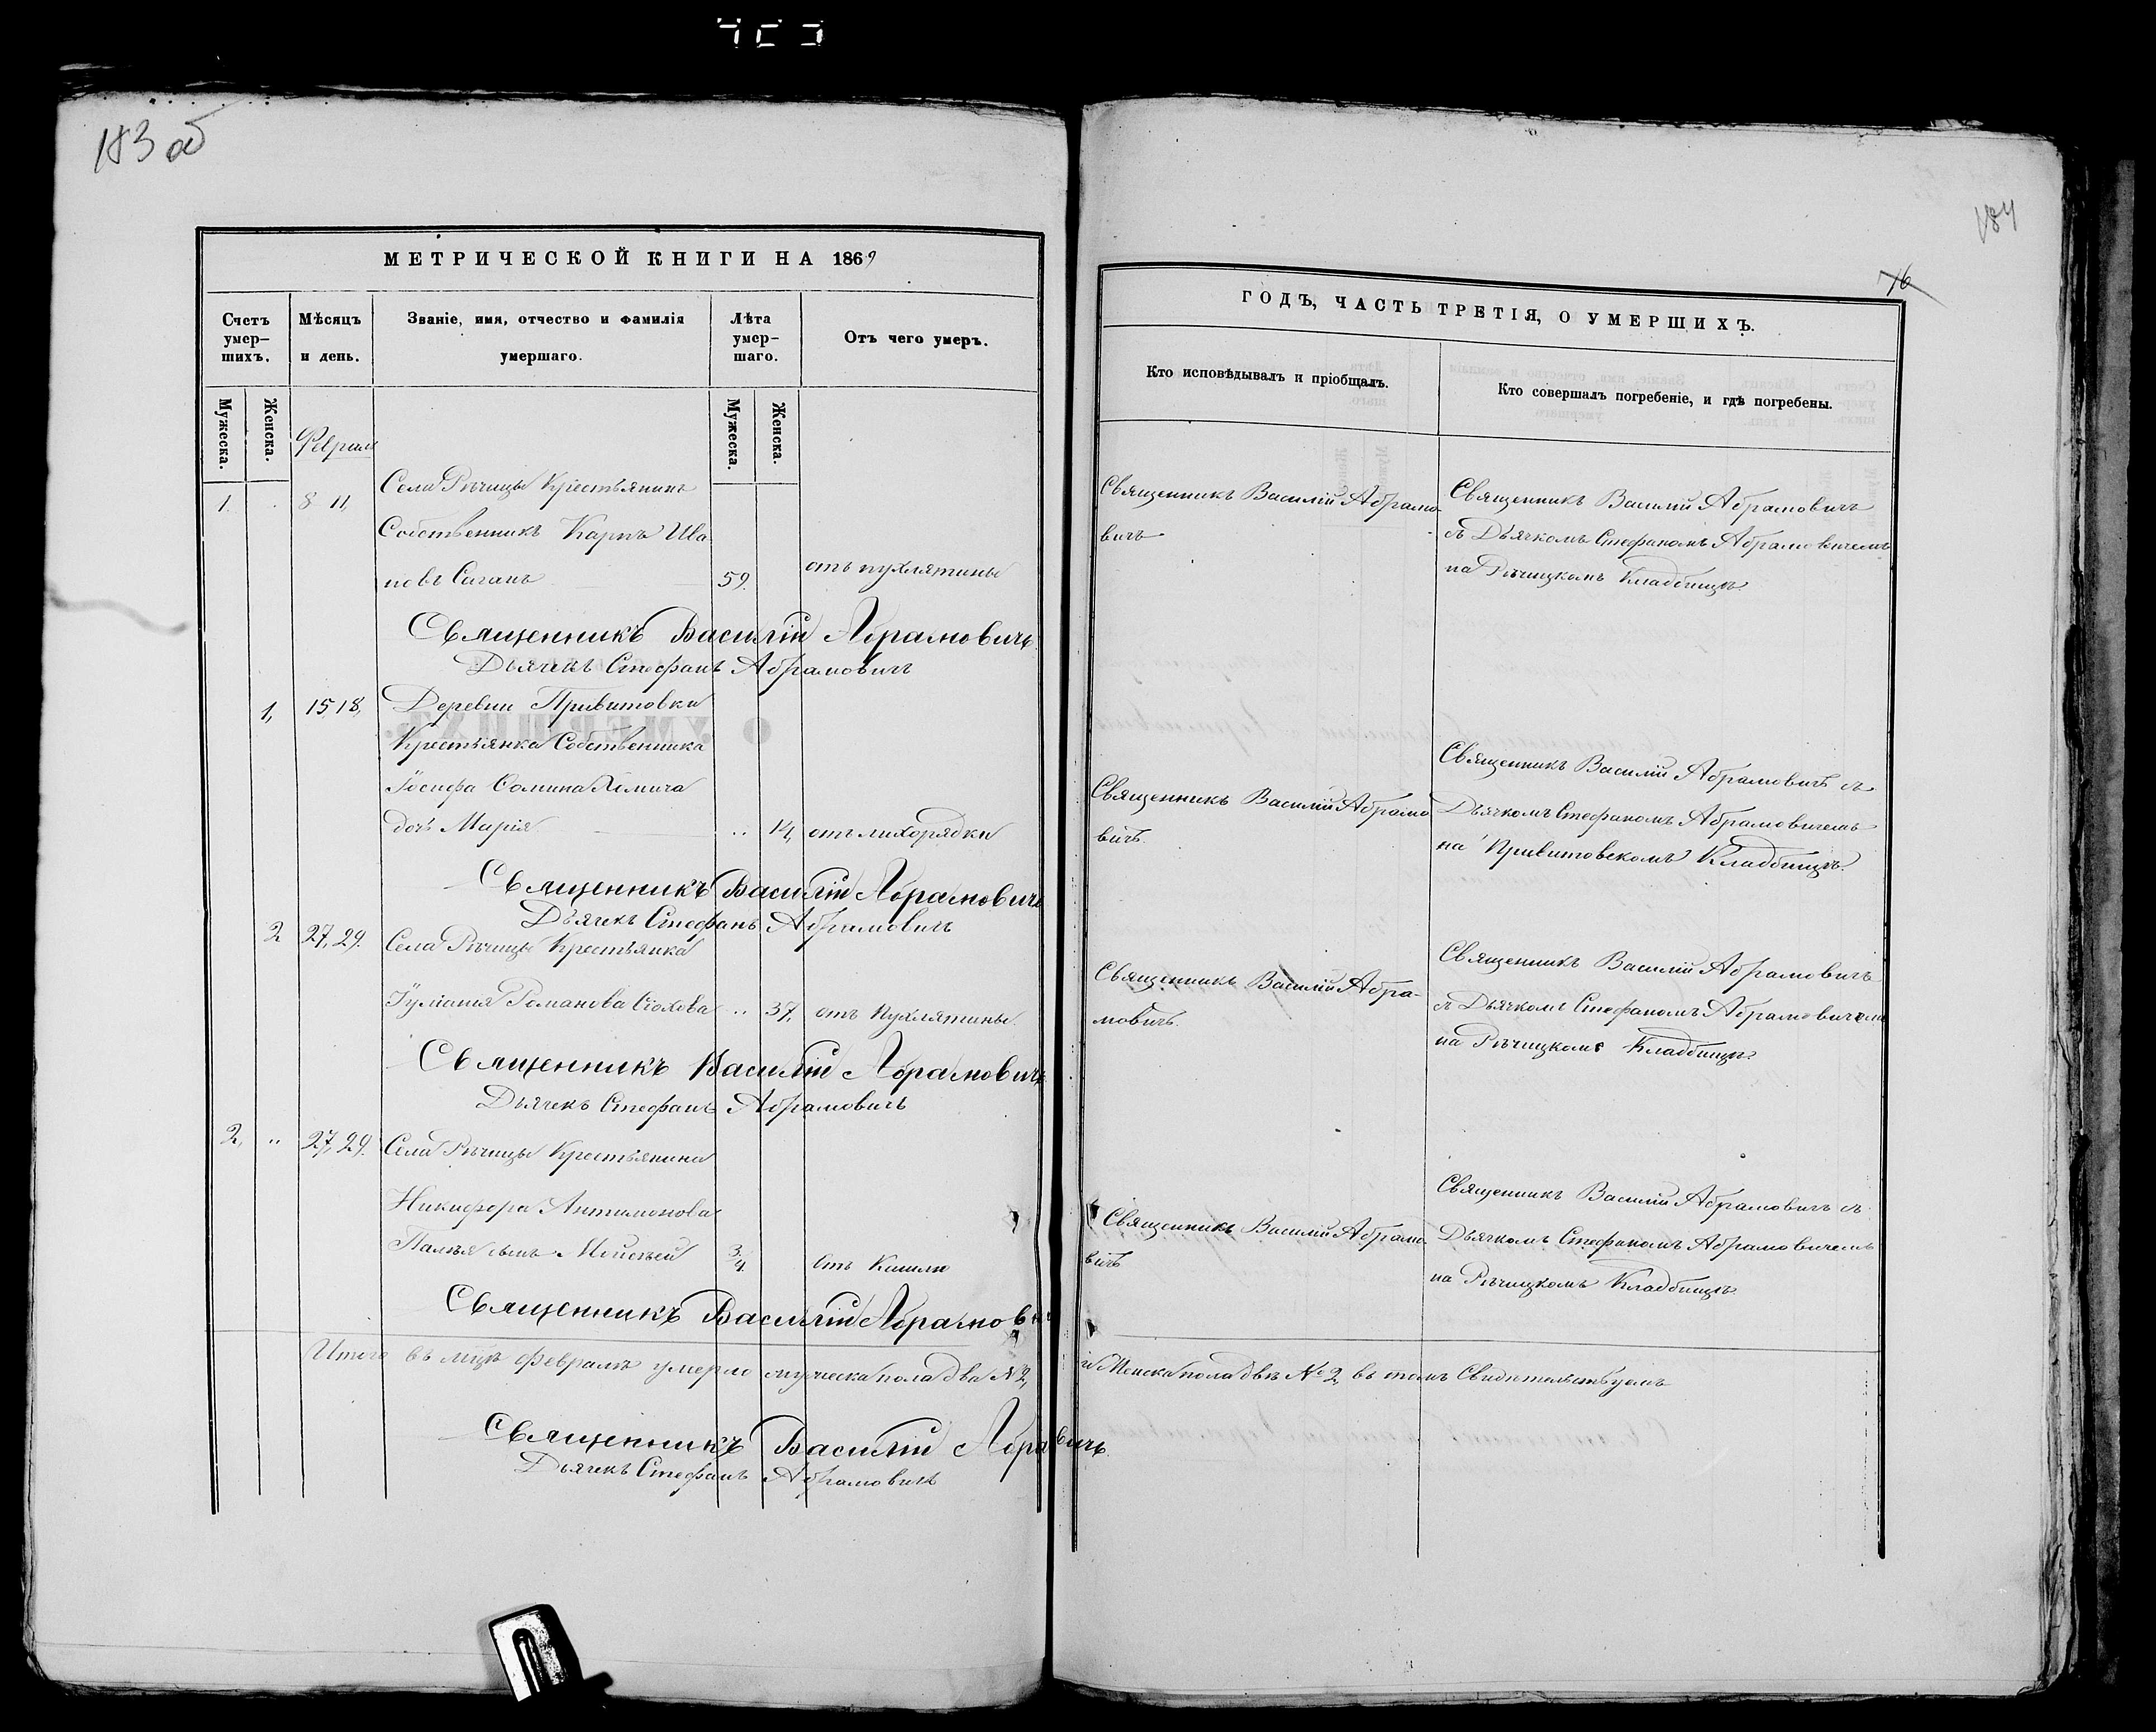 183 об
184
76
МЕТРИЧЕСКОЙ КНИГИ НА 1869
Счетъ умер-шихъ.
Мѣсяцъ и день.
Званіе, имя, отчество и фамилія умершаго.
Лѣта умер-шаго.
Отъ чего умеръ.
Мужеска.
Женска.
Мужеска.
Женска.
Февраль
Села Рѣчицы Крестьянинъ
1. 8 11,
Собственникъ Карпъ Ива
новъ Саганъ 59. отъ пухлятины
Священникъ Василій Абрамовичъ
Дьячекъ Стефанъ Абрамовичъ
1, 15, 18, Деревни Привитовки
Крестьянка Собственника
Іосифа Ѳомина
дочь Марія 14, отъ лихорядки
Священникъ Василій Абрамовичъ
Дьячекъ Стефанъ Абрамовичъ
2 27, 29. Села Рѣчицы Крестьянка
Іуліанія Романова 37, отъ пухлятины.
Священникъ Василій Абрамовичъ
Дьячекъ Стефанъ Абрамовичъ
2, 27, 29. Села Рѣчицы Крестьянина
Никифора Антимонова
сынъ Моисей 3/4 отъ Кашлю
Священникъ Василій Абрамович
Итого въ мцѣ Февралѣ умерло мужеска пола два №2,
Священникъ Василій Абрамовичъ
Дьячекъ Стефанъ Абрамовичъ
ГОДЪ, ЧАСТЬ ТРЕТІЯ, О УМЕРШИХЪ.
Кто исповѣдывалъ и пріобщалъ.
Кто совершалъ погребеніе, и гдѣ погребены.
Священникъ Василій Абрамо-
вичъ
Священникъ Василій Абрамовичъ
съ Дьячкомъ Стефаномъ Абрамовичемъ
на Рѣчицкомъ Кладбищѣ.
Священникъ Василій Абрамо
вичъ.
Священникъ Василій Абрамовичъ съ
Дьячкомъ Стефаномъ Абрамовичемъ
на Привитовскомъ Кладбищѣ.
Священникъ Василій Абра-
мовичъ.
Священникъ Василій Абрамовичъ
съ Дьячкомъ Стефаномъ Абрамовичемъ
на Рѣчицкомъ Кладбищѣ.
Священникъ Василій Абрамо-
вичъ
Священникъ Василій Абрамовичъ съ
Дьячкомъ Стефаномъ Абрамовичемъ
на Рѣчицкомъ Кладбищѣ
и Женска пола двѣ №2, въ томъ Свидѣтельствуемъ